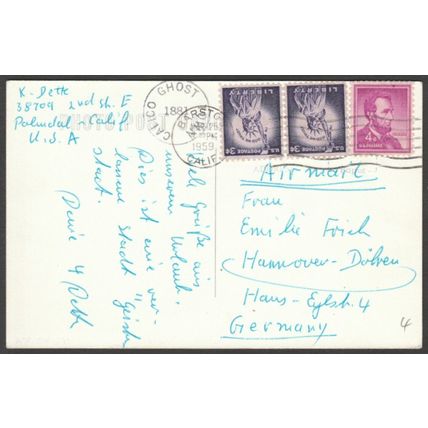 K-Dette
38709 2nd St. E
Palmdal Calif
U.S.A
PHOTO POST
CALICO GHOST
1881
BARSTOW
1959
CALIF.
LIBERTY
U.S. POSTAGE 3¢
LIBERTY
U.S. POSTAGE 3¢
4¢
Viele Grüße aus
unserem Urlaub.
Dies ist eine ver-
lassene Stadt "Geister
stadt.
Airmail
Frau
Emilie Frich
Hannover-Döhren
Hans-Eylstr. 4
Germany
4